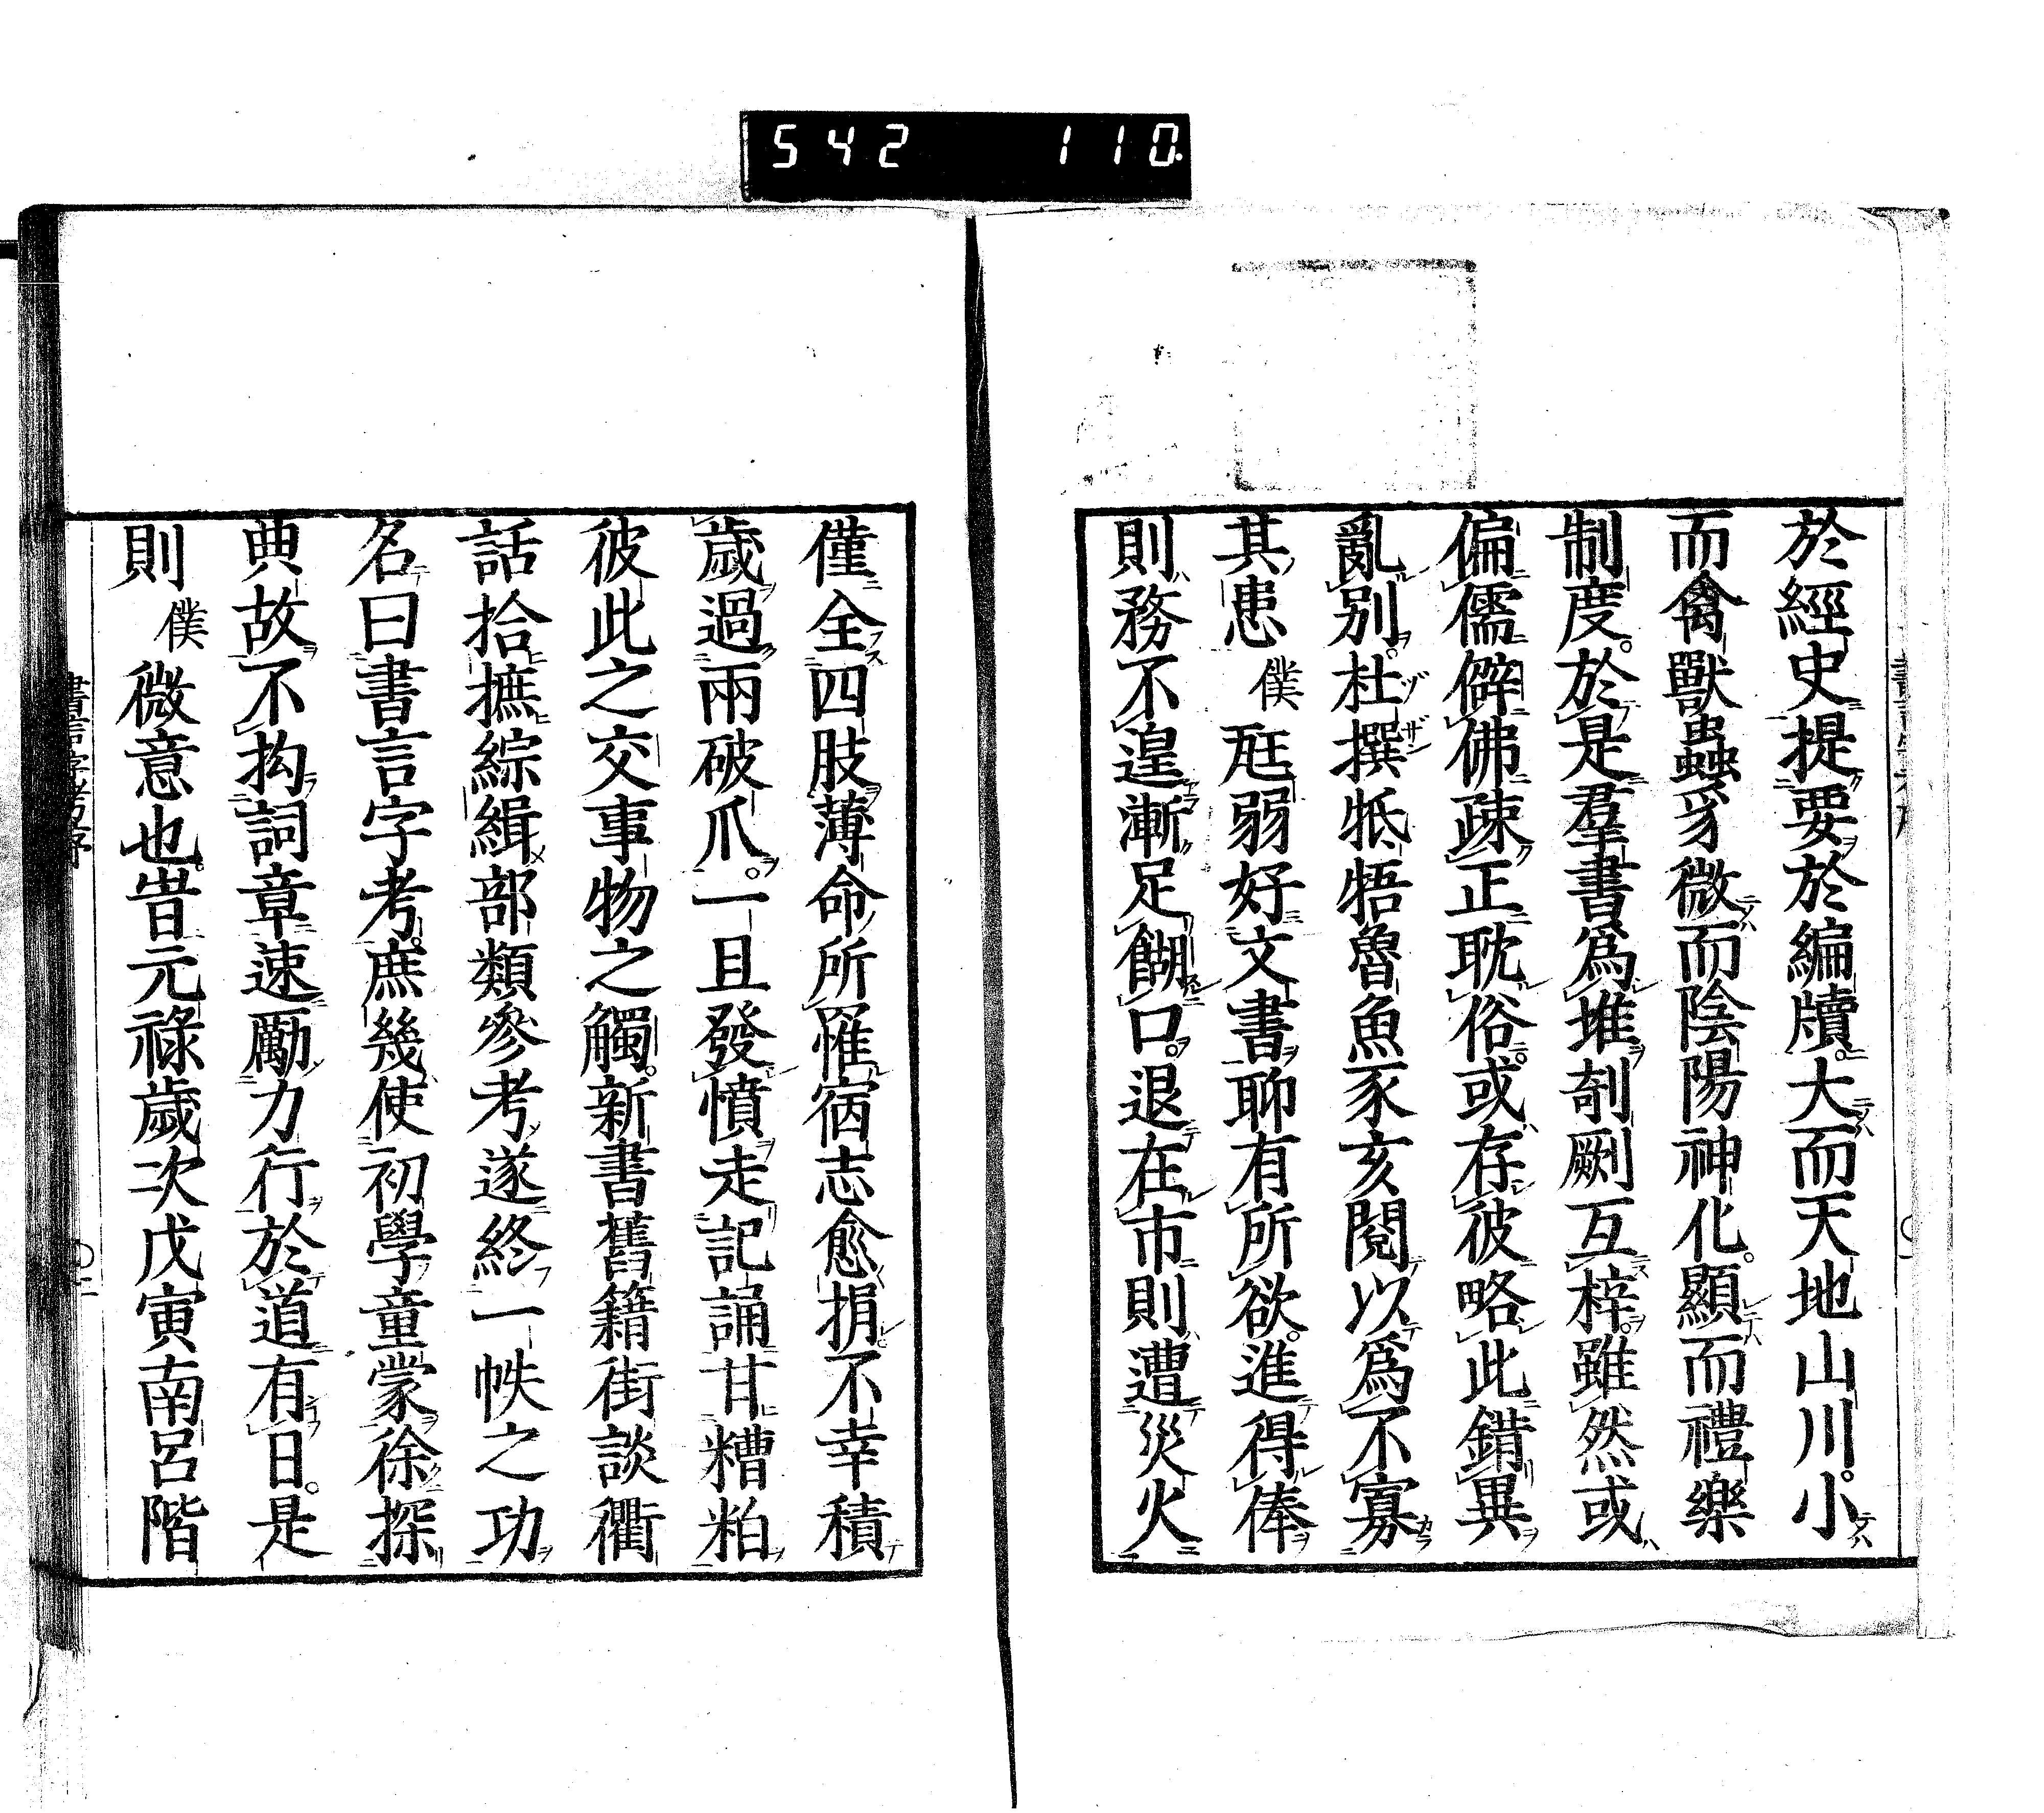 542 110.
於經史提要於編牘。大而天地山川。小
而禽獸蟲豸微而陰陽神化。顯而禮樂
制度。於是羣書爲堆剞劂互梓。雖然或
偏儒僻佛疎正耽俗。或存彼略此錯異
亂別。杜撰牴牾魯魚豕亥閱以爲不寡
其患僕尫弱好文書聊有所欲。進得俸
則務不遑漸足餬口。退在市則遭災火
僅全四肢薄命所罹宿志愈捐不幸積
歲過兩破爪。一旦發憤走記誦甘糟粕
彼此之交事物之觸。新書舊籍街談衢
話拾摭綜緝部類參考遂終一帙之功
名曰書言字考。庶幾使初學童蒙徐探
典故不拘詞章速勵力行於道有日。是
則僕微意也。昔元祿歲次戊寅南呂階
書言字考序 〇二